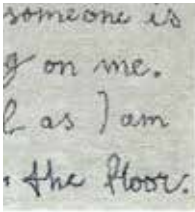 someone is
g on me.
as I am
the floor.